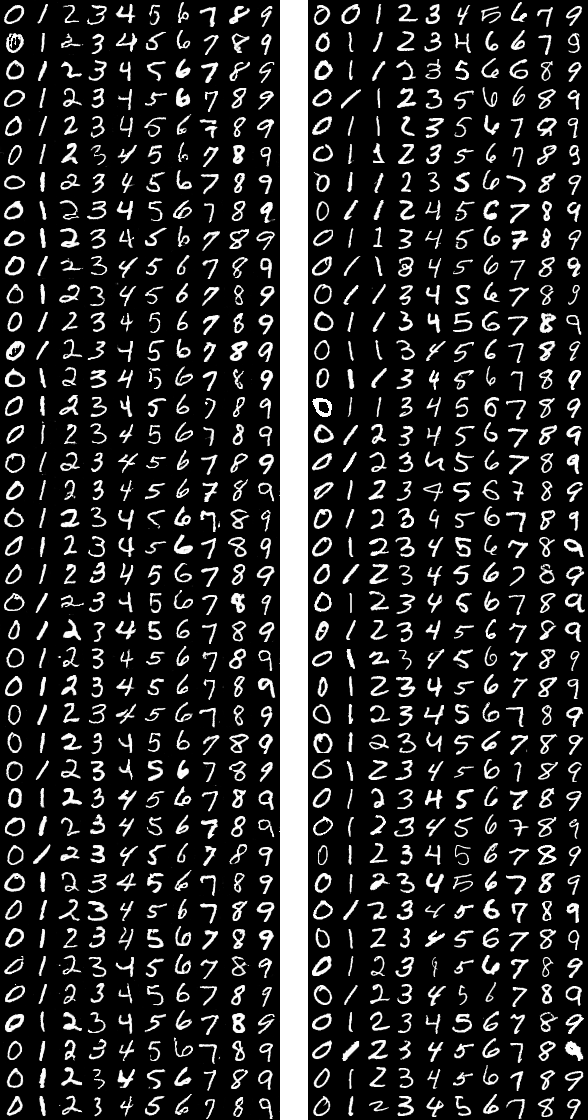 0 1 2 3 4 5 6 7 8 9
0 1 2 3 4 5 6 7 8 9
0 1 2 3 4 5 6 7 8 9
0 1 2 3 4 5 6 7 8 9
0 1 2 3 4 5 6 7 8 9
0 1 2 3 4 5 6 7 8 9
0 1 2 3 4 5 6 7 8 9
0 1 2 3 4 5 6 7 8 9
0 1 2 3 4 5 6 7 8 9
0 1 2 3 4 5 6 7 8 9
0 1 2 3 4 5 6 7 8 9
0 1 2 3 4 5 6 7 8 9
0 1 2 3 4 5 6 7 8 9
0 1 2 3 4 5 6 7 8 9
0 1 2 3 4 5 6 7 8 9
0 1 2 3 4 5 6 7 8 9
0 1 2 3 4 5 6 7 8 9
0 1 2 3 4 5 6 7 8 9
0 1 2 3 4 5 6 7 8 9
0 1 2 3 4 5 6 7 8 9
0 1 2 3 4 5 6 7 8 9
0 1 2 3 4 5 6 7 8 9
0 1 2 3 4 5 6 7 8 9
0 1 2 3 4 5 6 7 8 9
0 1 2 3 4 5 6 7 8 9
0 1 2 3 4 5 6 7 8 9
0 1 2 3 4 5 6 7 8 9
0 1 2 3 4 5 6 7 8 9
0 1 2 3 4 5 6 7 8 9
0 1 2 3 4 5 6 7 8 9
0 1 2 3 4 5 6 7 8 9
0 1 2 3 4 5 6 7 8 9
0 1 2 3 4 5 6 7 8 9
0 1 2 3 4 5 6 7 8 9
0 1 2 3 4 5 6 7 8 9
0 1 2 3 4 5 6 7 8 9
0 1 2 3 4 5 6 7 8 9
0 1 2 3 4 5 6 7 8 9
0 1 2 3 4 5 6 7 8 9
0 1 2 3 4 5 6 7 8 9
0 0 1 2 3 4 5 6 7 9
0 1 1 2 3 4 6 6 7 9
0 1 1 2 3 5 6 6 8 9
0 1 1 2 3 5 6 6 8 9
0 1 1 2 3 5 6 7 8 9
0 1 1 2 3 5 6 7 8 9
0 1 1 2 3 5 6 7 8 9
0 1 1 2 4 5 6 7 8 9
0 1 1 3 4 5 6 7 8 9
0 1 1 3 4 5 6 7 8 9
0 1 1 3 4 5 6 7 8 9
0 1 1 3 4 5 6 7 8 9
0 1 1 3 4 5 6 7 8 9
0 1 1 3 4 5 6 7 8 9
0 1 1 3 4 5 6 7 8 9
0 1 2 3 4 5 6 7 8 9
0 1 2 3 4 5 6 7 8 9
0 1 2 3 4 5 6 7 8 9
0 1 2 3 4 5 6 7 8 9
0 1 2 3 4 5 6 7 8 9
0 1 2 3 4 5 6 7 8 9
0 1 2 3 4 5 6 7 8 9
0 1 2 3 4 5 6 7 8 9
0 1 2 3 4 5 6 7 8 9
0 1 2 3 4 5 6 7 8 9
0 1 2 3 4 5 6 7 8 9
0 1 2 3 4 5 6 7 8 9
0 1 2 3 4 5 6 7 8 9
0 1 2 3 4 5 6 7 8 9
0 1 2 3 4 5 6 7 8 9
0 1 2 3 4 5 6 7 8 9
0 1 2 3 4 5 6 7 8 9
0 1 2 3 4 5 6 7 8 9
0 1 2 3 4 5 6 7 8 9
0 1 2 3 4 5 6 7 8 9
0 1 2 3 4 5 6 7 8 9
0 1 2 3 4 5 6 7 8 9
0 1 2 3 4 5 6 7 8 9
0 1 2 3 4 5 6 7 8 9
0 1 2 3 4 5 6 7 8 9